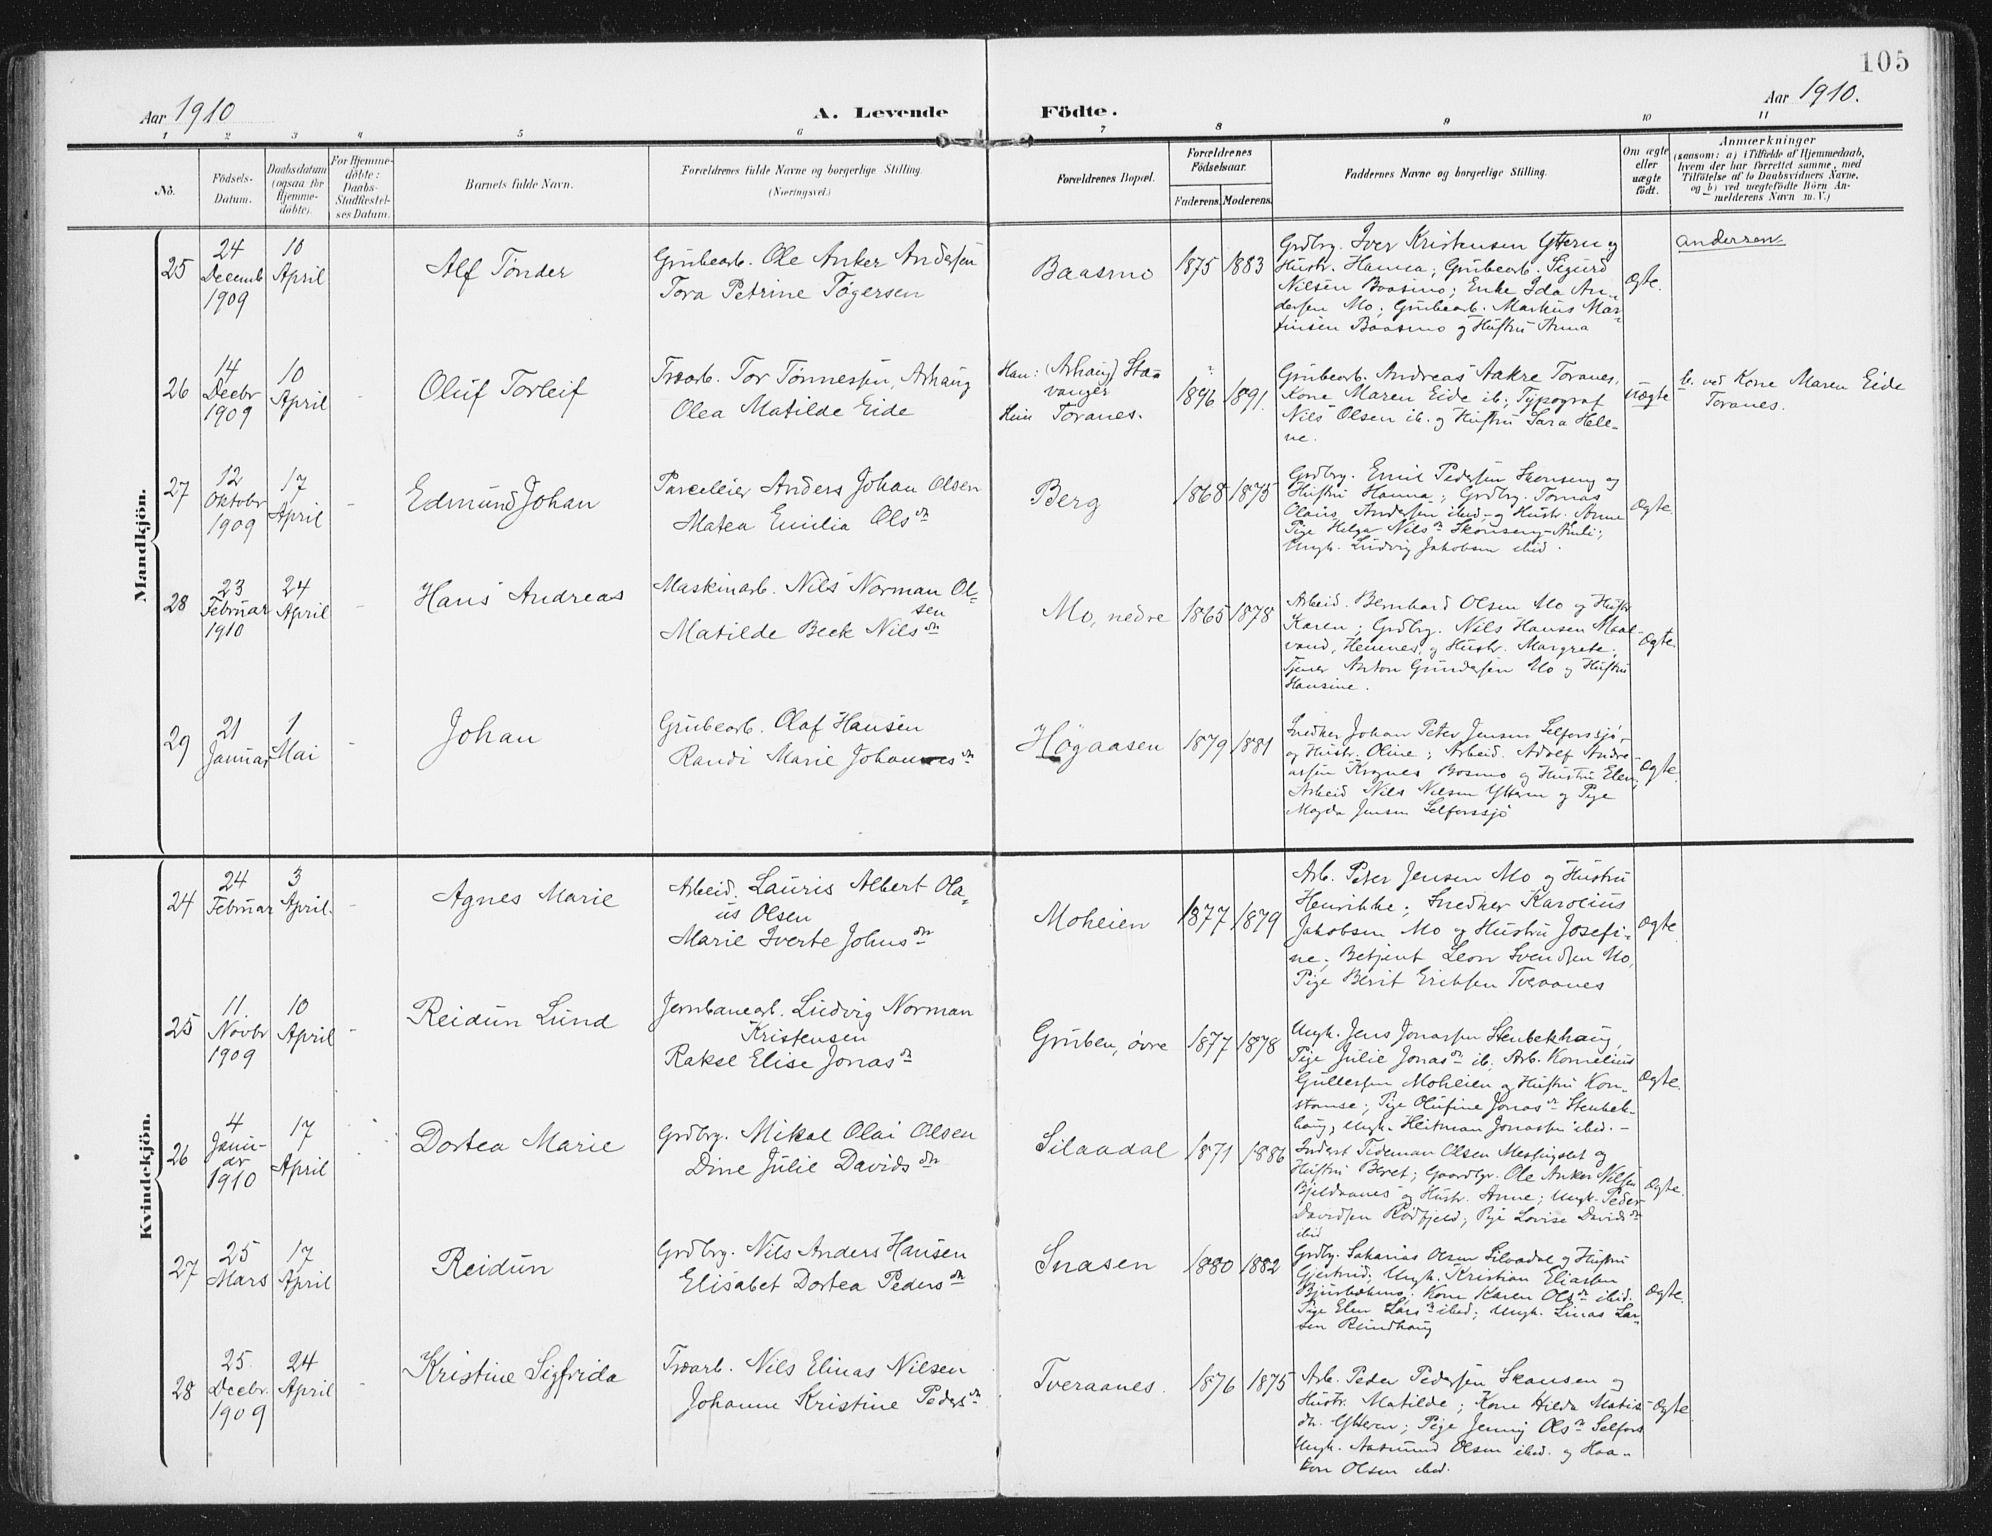 105
Aar 1910
A. Levende Födte.
Aar 1910.
1 2 3 4 5 6 7 8 9 10 11
No.
Födsels-
Datum.
Daabsdatum
(ogsaa for
Hjemme-
döbte).
For Hjemme-
döbte:
Daabs-
Stadfæstel-
ses Datum.
Barnets fulde Navn.
Forældrenes fulde Navne og borgerlige Stilling.
(Næringsvei.)
Forældrenes Bopæl.
Forældrenes
Födselsaar.
Faderens. Moderens.
Faddernes Navne og borgerlige Stilling.
Om ægte
eller
uægte
födt.
Anmærkninger
(saasom: a) i Tilfælde af Hjemmedaab,
hvem der har forrettet samme, med
Tilföielse af to Daabsvidners Navne,
og b) ved uægtefödte Börn An-
melderens Navn m.V.)
Mandkjön.
25
24
Decemb
1909
10
April
Alf Tönder
Grubearb. Ole Anker Andersen
Tora Petrine Tögersen
Baasmo
1875 1883
Grdbrg. Iver Kristensen Yttern og
Hustr. Hanna; Grubearb. Sigurd
Nilsen Baasmo; Enke Ida An-
dersen Mo; Grubearb. Markus Mar-
tinsen Baasmo og Hustru Anna
Ægte.
Andersen.
26
14
Decbr
1909
10
April
Oluf Torleif
Træarb. Tor Tönnesen, Arhaug
Olea Matilde Eide
Han: (Arhaug) Sta-
vanger
Hun Toranes.
1896 1891.
Grubearb. Andreas Aakre Toranes,
Kone Maren Eide ib.; Typograf
Nils Olsen ib. og Hustru Sara Hele-
ne.
Uægte
b. ved Kone Maren Eide
Toranes.
27
12
Oktobr
1909
17
April
Edmund Johan
Parceleier Anders Johan Olsen
Matea Emilia Olsdtr
Berg
1868 1875
Grdbrg. Emil Pedersen Skonseng og
Hustru Hanna; Grdbrg. Tomas
Olaus Andersen ibid. og Hustr. Anne
Pige Helga Nilsdtr Skonseng-Amli;
Ungk. Ludvig Jakobsen ibid.
Ægte
28
23
Februar
1910
24
April
Hans Andreas
Maskinarb. Nils Norman Ol-
sen
Matilde Beck Nilsdtr
Mo, nedre
1865 1878
Arbeid. Bernhard Olsen Mo og Hustr.
Karen; Grdbrg. Nils Hansen Maal-
vand, Hemnes, og Hustr. Margrete;
Tjener Anton Gundersen Mo og Hustru
Hansine.
Ægte.
29
21
Januar
1
Mai
Johan
Grubearb. Olaf Hansen
Randi Marie Johannesdtr
Högaasen
1879 1881
Snedker Johan Peter Jensen Selforssjö,
og Hustr. Oline; Arbeid. Adolf Andre-
assen Krognes Bosmo og Hustru Elen;
Arbeid Nils Nilsen Yttern og Pige
Magda Jensen Selforssjö
Ægte.
Kvindekjön.
24
24
Februar
3
April.
Agnes Marie
Arbeid. Lauris Albert Ola-
us Olsen
Marie Iverte Johnsdtr
Moheien
1877 1879
Arb. Peter Jensen Mo og Hustru
Henrikke; Snedker Karolius
Jakobsen Mo og Hustru Josefi-
ne; Betjent Leon Svendsen Mo,
Pige Berit Eriksen Tveraanes
Ægte
25
11.
Novbr
1909
10
April
Reidun Lund
Jernbanearb. Ludvig Norman
Kristensen
Rakel Elise Jonasdtr
Gruben, övre
1877 1878
Ungk. Jens Jonassen Stenbekhaug,
Pige Julie Jonasdtr ib. Arb. Kornelius
Gullesen Moheien og Hustru Kon-
stanse; Pige Olufine Jonasdtr Stenbek-
haug, Ungk. Heitman Jonassen ibid.
Ægte.
26
4
Janu-
ar
1910
17
April
Dortea Marie
Grdbrg. Mikal Olai Olsen
Dine Julie Davidsdtr
Silaadal
1871 1886
Inderst Tideman Olsen Messingslet og
Hustru Beret; Gaardbr. Ole Anker Nilsen
Bjeldaanes og Hustr. Anne; Ungk. Peder
Davidsen Rödfjeld; Pige Lovise Davidsdtr
ibid
Ægte.
27
25
Mars
17
April
Reidun
Grdbrg. Nils Anders Hansen
Elisabet Dortea Pedersdtr
Snasen
1880 1882
Grdbg. Sakarias Olsen Silaadal og Hustru
Gjertrud; Ungk. Kristian Eliassen
Kone Karen Olsdtr ibid.
Pige Elen Larsdtr ibid; Ungk. Linas Lar-
sen Rundhaug
Ægte.
28
25
Decbr.
1909
24
April
Kristine Sigfrida
Træarb. Nils Elinas Nilsen
Johanne Kristine Pedersdtr
Tveraanes.
1876 1875
Arb. Peder Pedersen Skansen og
Hustr. Matilde; Kone Hilda Matis-
dtr. Yttern; Pige Jenny Olsdtr Selfors
Ungk. Aasmund Olsen ibid. og Haa-
kon Olsen ibid.
Ægte